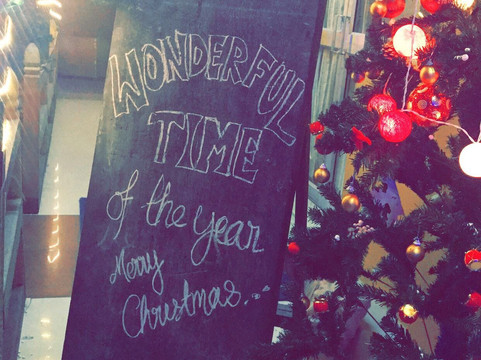 WONDERFUL
TIME
of the year
Merry
Christmas...